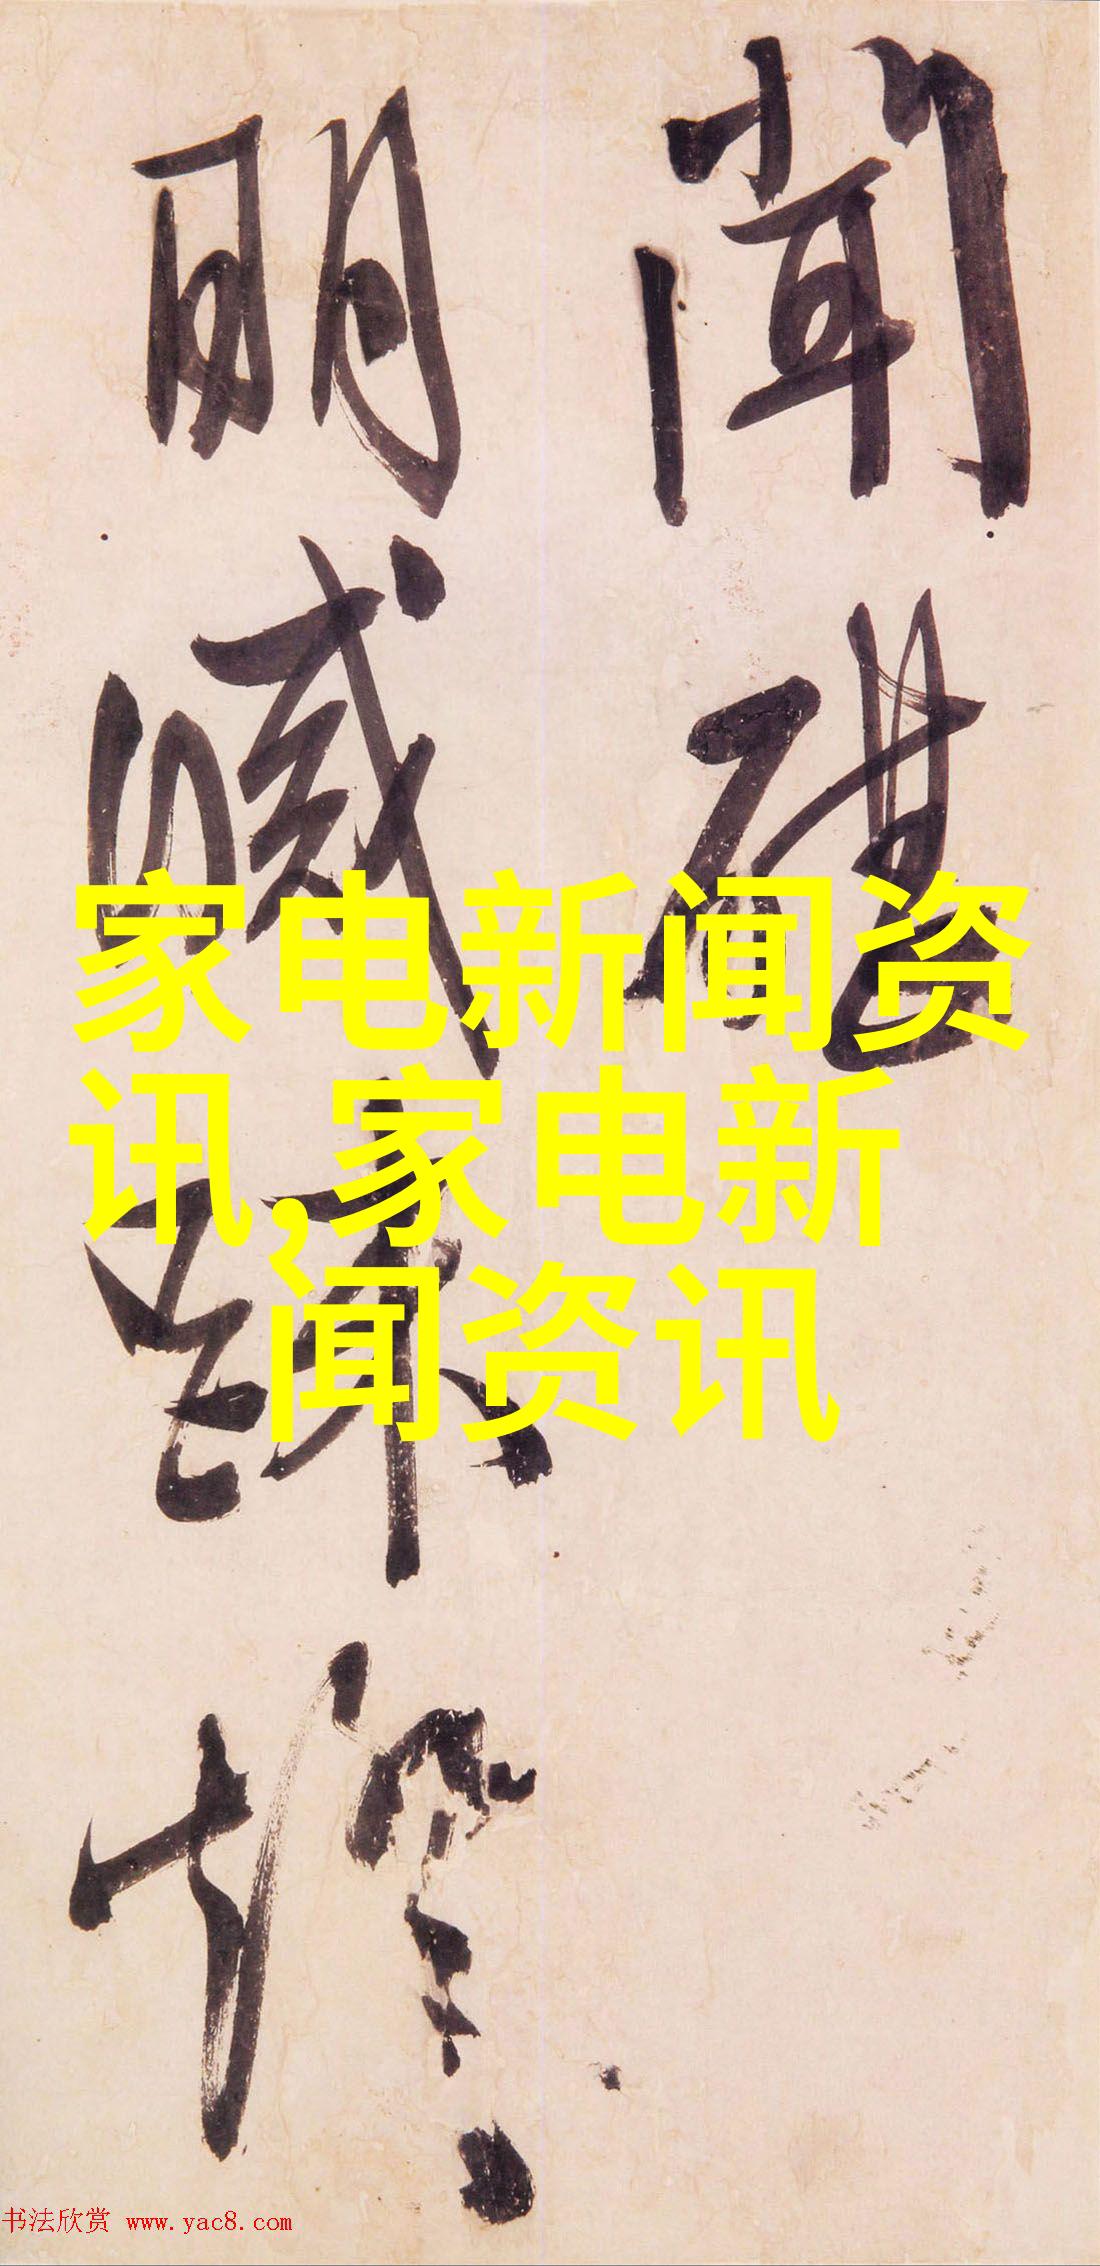 聞碪
明
家电新闻资
讯,家电新
闻资讯
书法欣赏 www.yac8.com